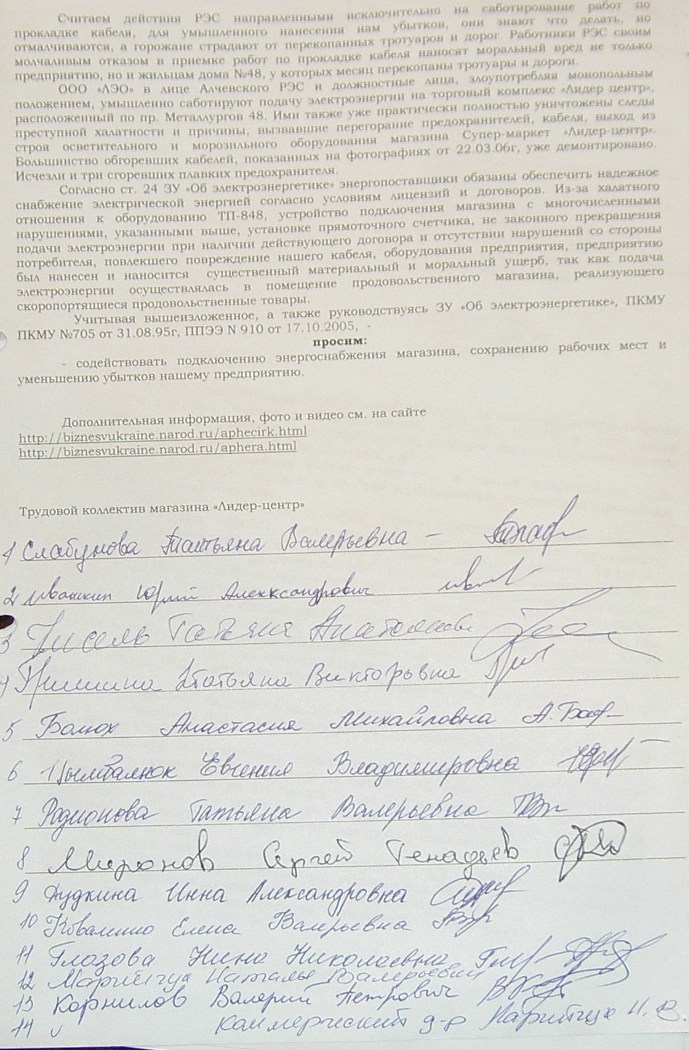 Считаем действия РЭС направленными исключительно на саботирование работ по
прокладке кабеля, для умышленного нанесения нам убытков, они знают что делать, но
отмалчиваются, а горожане страдают от перекопанных тротуаров и дорог. Работники РЭС своим
молчаливым отказом в приемке работ по прокладке кабеля наносят моральный вред не только
предприятию, но и жильцам дома №48, у которых месяц перекопаны тротуары и дороги.
ООО «ЛЭО» в лице Алчевского РЭС и должностные лица, злоупотребляя монопольным
положением, умышленно саботируют подачу электроэнергии на торговый комплекс «Лидер центр»,
расположенный по пр. Металлургов 48. Ими также уже практически полностью уничтожены следы
преступной халатности и причины, вызвавшие перегорание предохранителей, кабеля, выход из
строя осветительного и морозильного оборудования магазина Супер-маркет «Лидер-центр».
Большинство обгоревших кабелей, показанных на фотографиях от 22.03.06г, уже демонтировано.
Исчезли и три сгоревших плавких предохранителя.
Согласно ст. 24 ЗУ «Об электроэнергетике» энергопоставщики обязаны обеспечить надежное
снабжение электрической энергией согласно условиям лицензий и договоров. Из-за халатного
отношения к оборудованию ТП-848, устройство подключения магазина с многочисленными
нарушениями, указанными выше, установке прямоточного счетчика, не законного прекращения
подачи электроэнергии при наличии действующего договора и отсутствии нарушений со стороны
потребителя, повлекшего повреждение нашего кабеля, оборудования предприятия, предприятию
был нанесен и наносится существенный материальный и моральный ущерб, так как подача
электроэнергии осуществлялась в помещение продовольственного магазина, реализующего
скоропортящиеся продовольственные товары.
Учитывая вышеизложенное, а также руководствуясь ЗУ «Об электроэнергетике», ПКМУ
ПКМУ №705 от 31.08.95г, ППЭЭ N 910 от 17.10.2005, -
просим:
- содействовать подключению энергоснабжения магазина, сохранению рабочих мест и
уменьшению убытков нашему предприятию.
Дополнительная информация, фото и видео см. на сайте
http://biznesvukraine.narod.ru/aphecirk.html
http://biznesvukraine.narod.ru/aphera.html
Трудовой коллектив магазина «Лидер-центр»
1 Слабунова Татьяна Валерьевна -
2 Ивашкин Юрий Александрович
3 Кисель Татьяна Анатольевна
4 Гришина Татьяна Викторовна
5 Банох Анастасия Михайловна А.Бан
6 Цымбалюк Евгения Владимировна
7 Родионова Татьяна Валерьевна
8 Миронов Сергей Генадьев
9 Дудкина Инна Александровна
10 Коваленко Елена Валерьевна
11 Глазова Нина Николаевна
12 Марийчук Наталья Валерьевна
13 Корнилов Валерий Петрович
14 Коммерческий д-р Н.В.